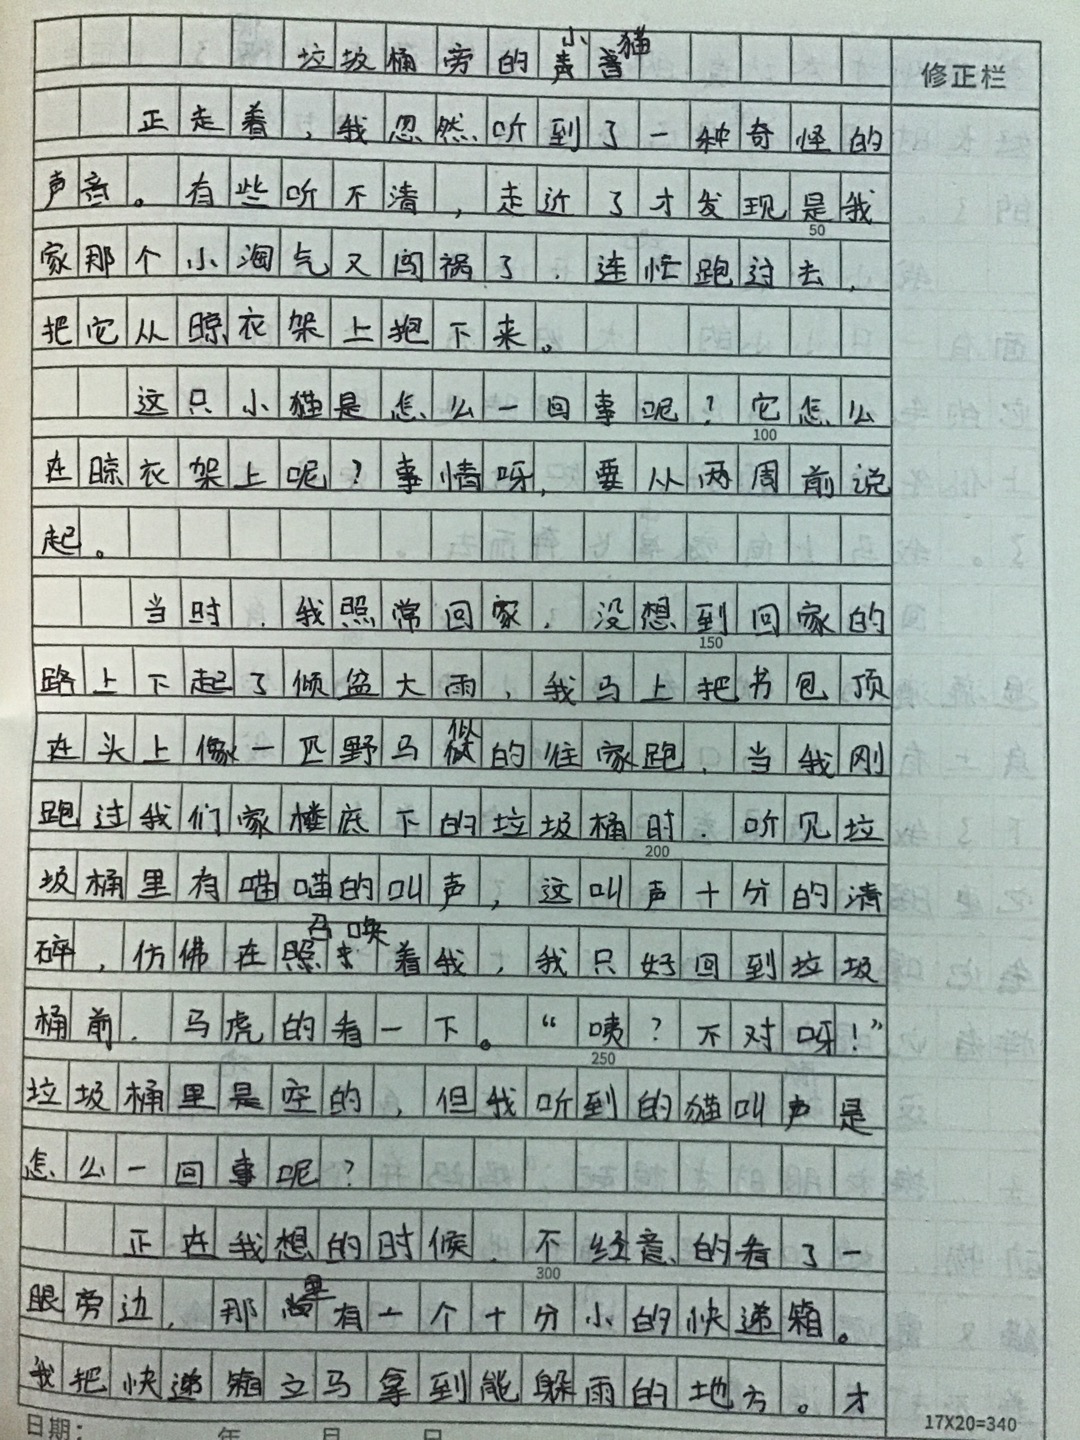 垃圾桶旁的小猫
修正栏
正走着，我忽然听到了一种奇怪的
声音。有些听不清，走近了才发现是我
50
家那个小淘气又闯祸了，连忙跑过去，
把它从晾衣架上抱下来。
这只小猫是怎么一回事呢？它怎么
100
在晾衣架上呢？事情呀，要从两周前说
起。
当时，我照常回家，没想到回家的
150
路上下起了倾盆大雨，我马上把书包顶
在头上像一匹野马似的往家跑，当我刚
跑过我们家楼底下的垃圾桶时，听见垃
200
圾桶里有喵喵的叫声，这叫声十分的清
碎，仿佛在召唤着我，我只好回到垃圾
桶前，马虎的看一下。“咦？不对呀！”
250
垃圾桶里是空的，但我听到的猫叫声是
怎么一回事呢？
正在我想的时候，不经意的看了一
300
眼旁边，那里有一个十分小的快递箱。
我把快递箱立马拿到能躲雨的地方。才
17X20=340
日期： 年 月 日